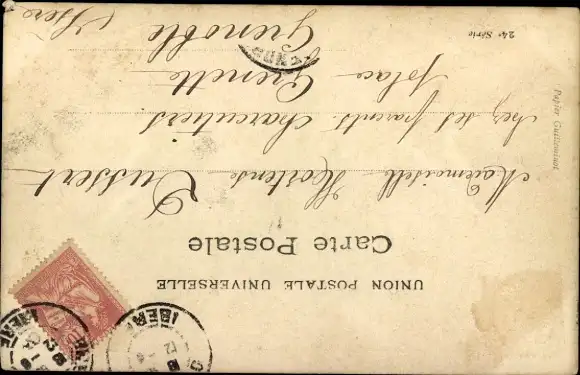 UNION POSTALE UNIVERSELLE
Carte Postale
Mademoiselle Hortense Dussert
chez ses parents charcutiers
place Grenette
Grenoble Isère
24e Série
Papier Guilleminot